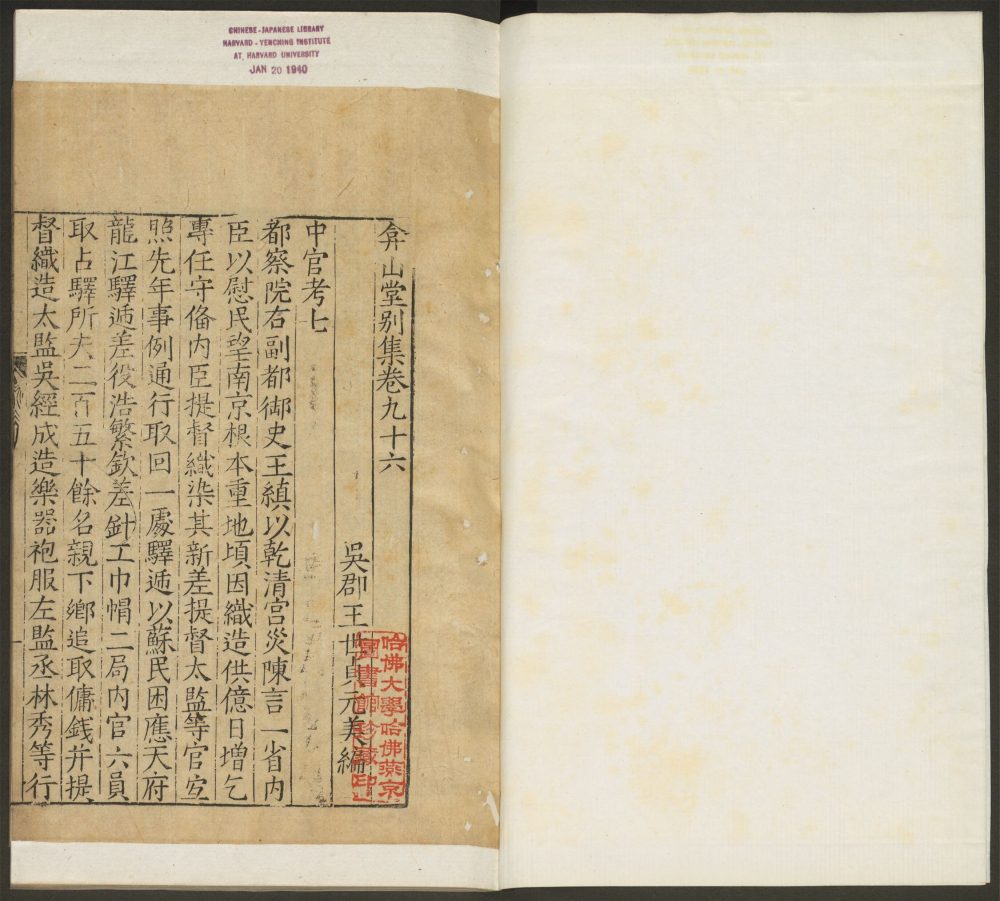 CHINESE-JAPANESE LIBRARY
HARVARD-YENCHING INSTITUTE
AT HARVARD UNIVERSITY
JAN 20 1940
弇山堂别集卷九十六
吳郡王世貞元美編
哈佛大學哈佛燕京
圖書館珍藏印
中官考七
都察院右副都御史王縝以乾清宮災陳言一省内
臣以慰民望南京根本重地頃因織造供億日增乞
專任守俻内臣提督織染其新差提督太監等官宜
照先年事例通行取回一處驛遞以蘇民困應天府
龍江驛遞差役浩繁欽差針工巾帽二局内官六員
取占驛所夫二百五十餘名親下鄉追取傭銭并提
督織造太監吳經成造樂器袍服左監丞林秀等行